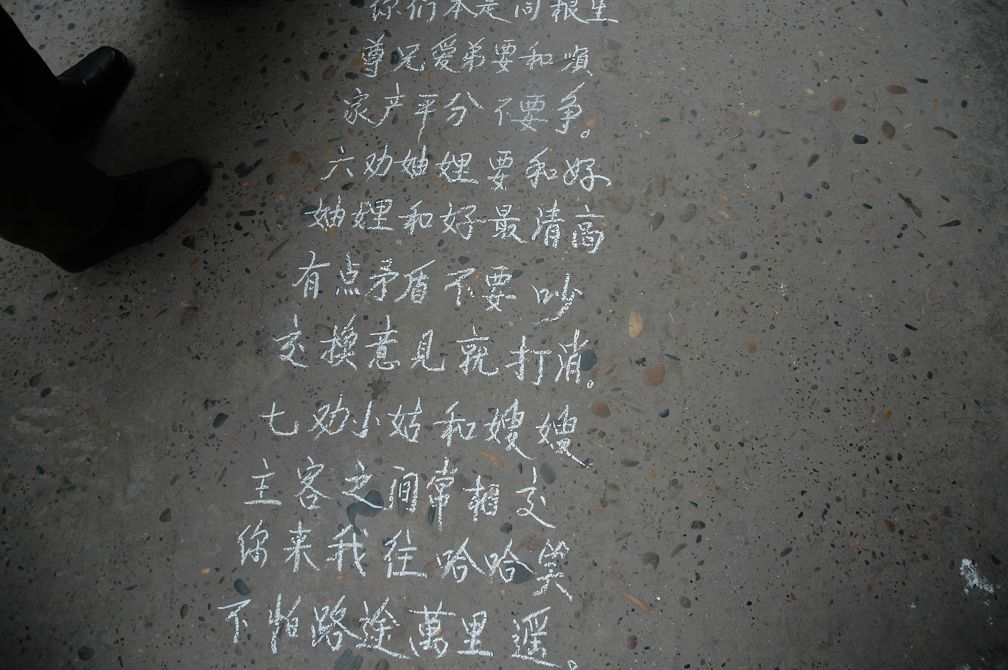 你们本是同根生
尊兄爱弟要和順
家产平分不要争。
六劝妯娌要和好
妯娌和好最清高
有点矛盾不要吵
交換意见就打消。
七劝小姑和嫂嫂
主客之间常相交
你来我往哈哈笑
不怕路途萬里遥。